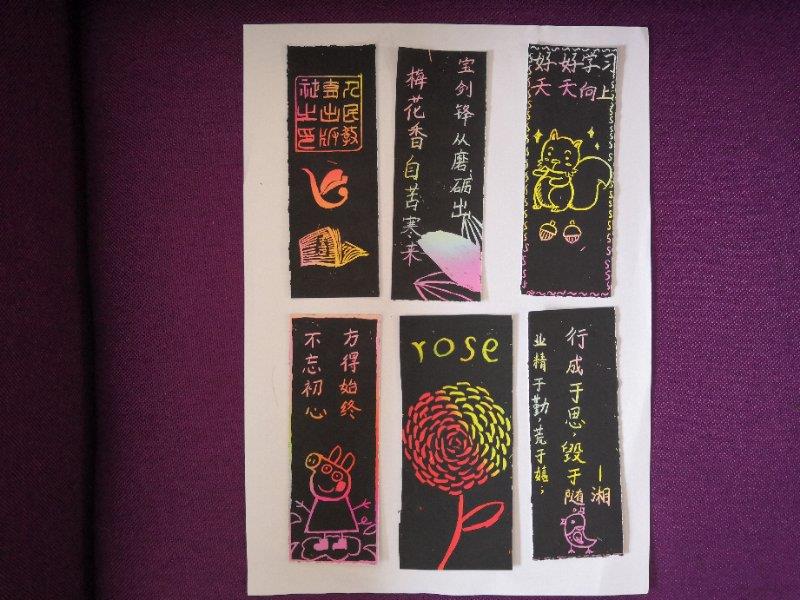 人民教
育出版
社之印
宝剑锋从磨砺出
梅花香自苦寒来
好好学习
天天向上
不忘初心
方得始终
rose
业精于勤，荒于嬉；
行成于思，毁于随
—湘